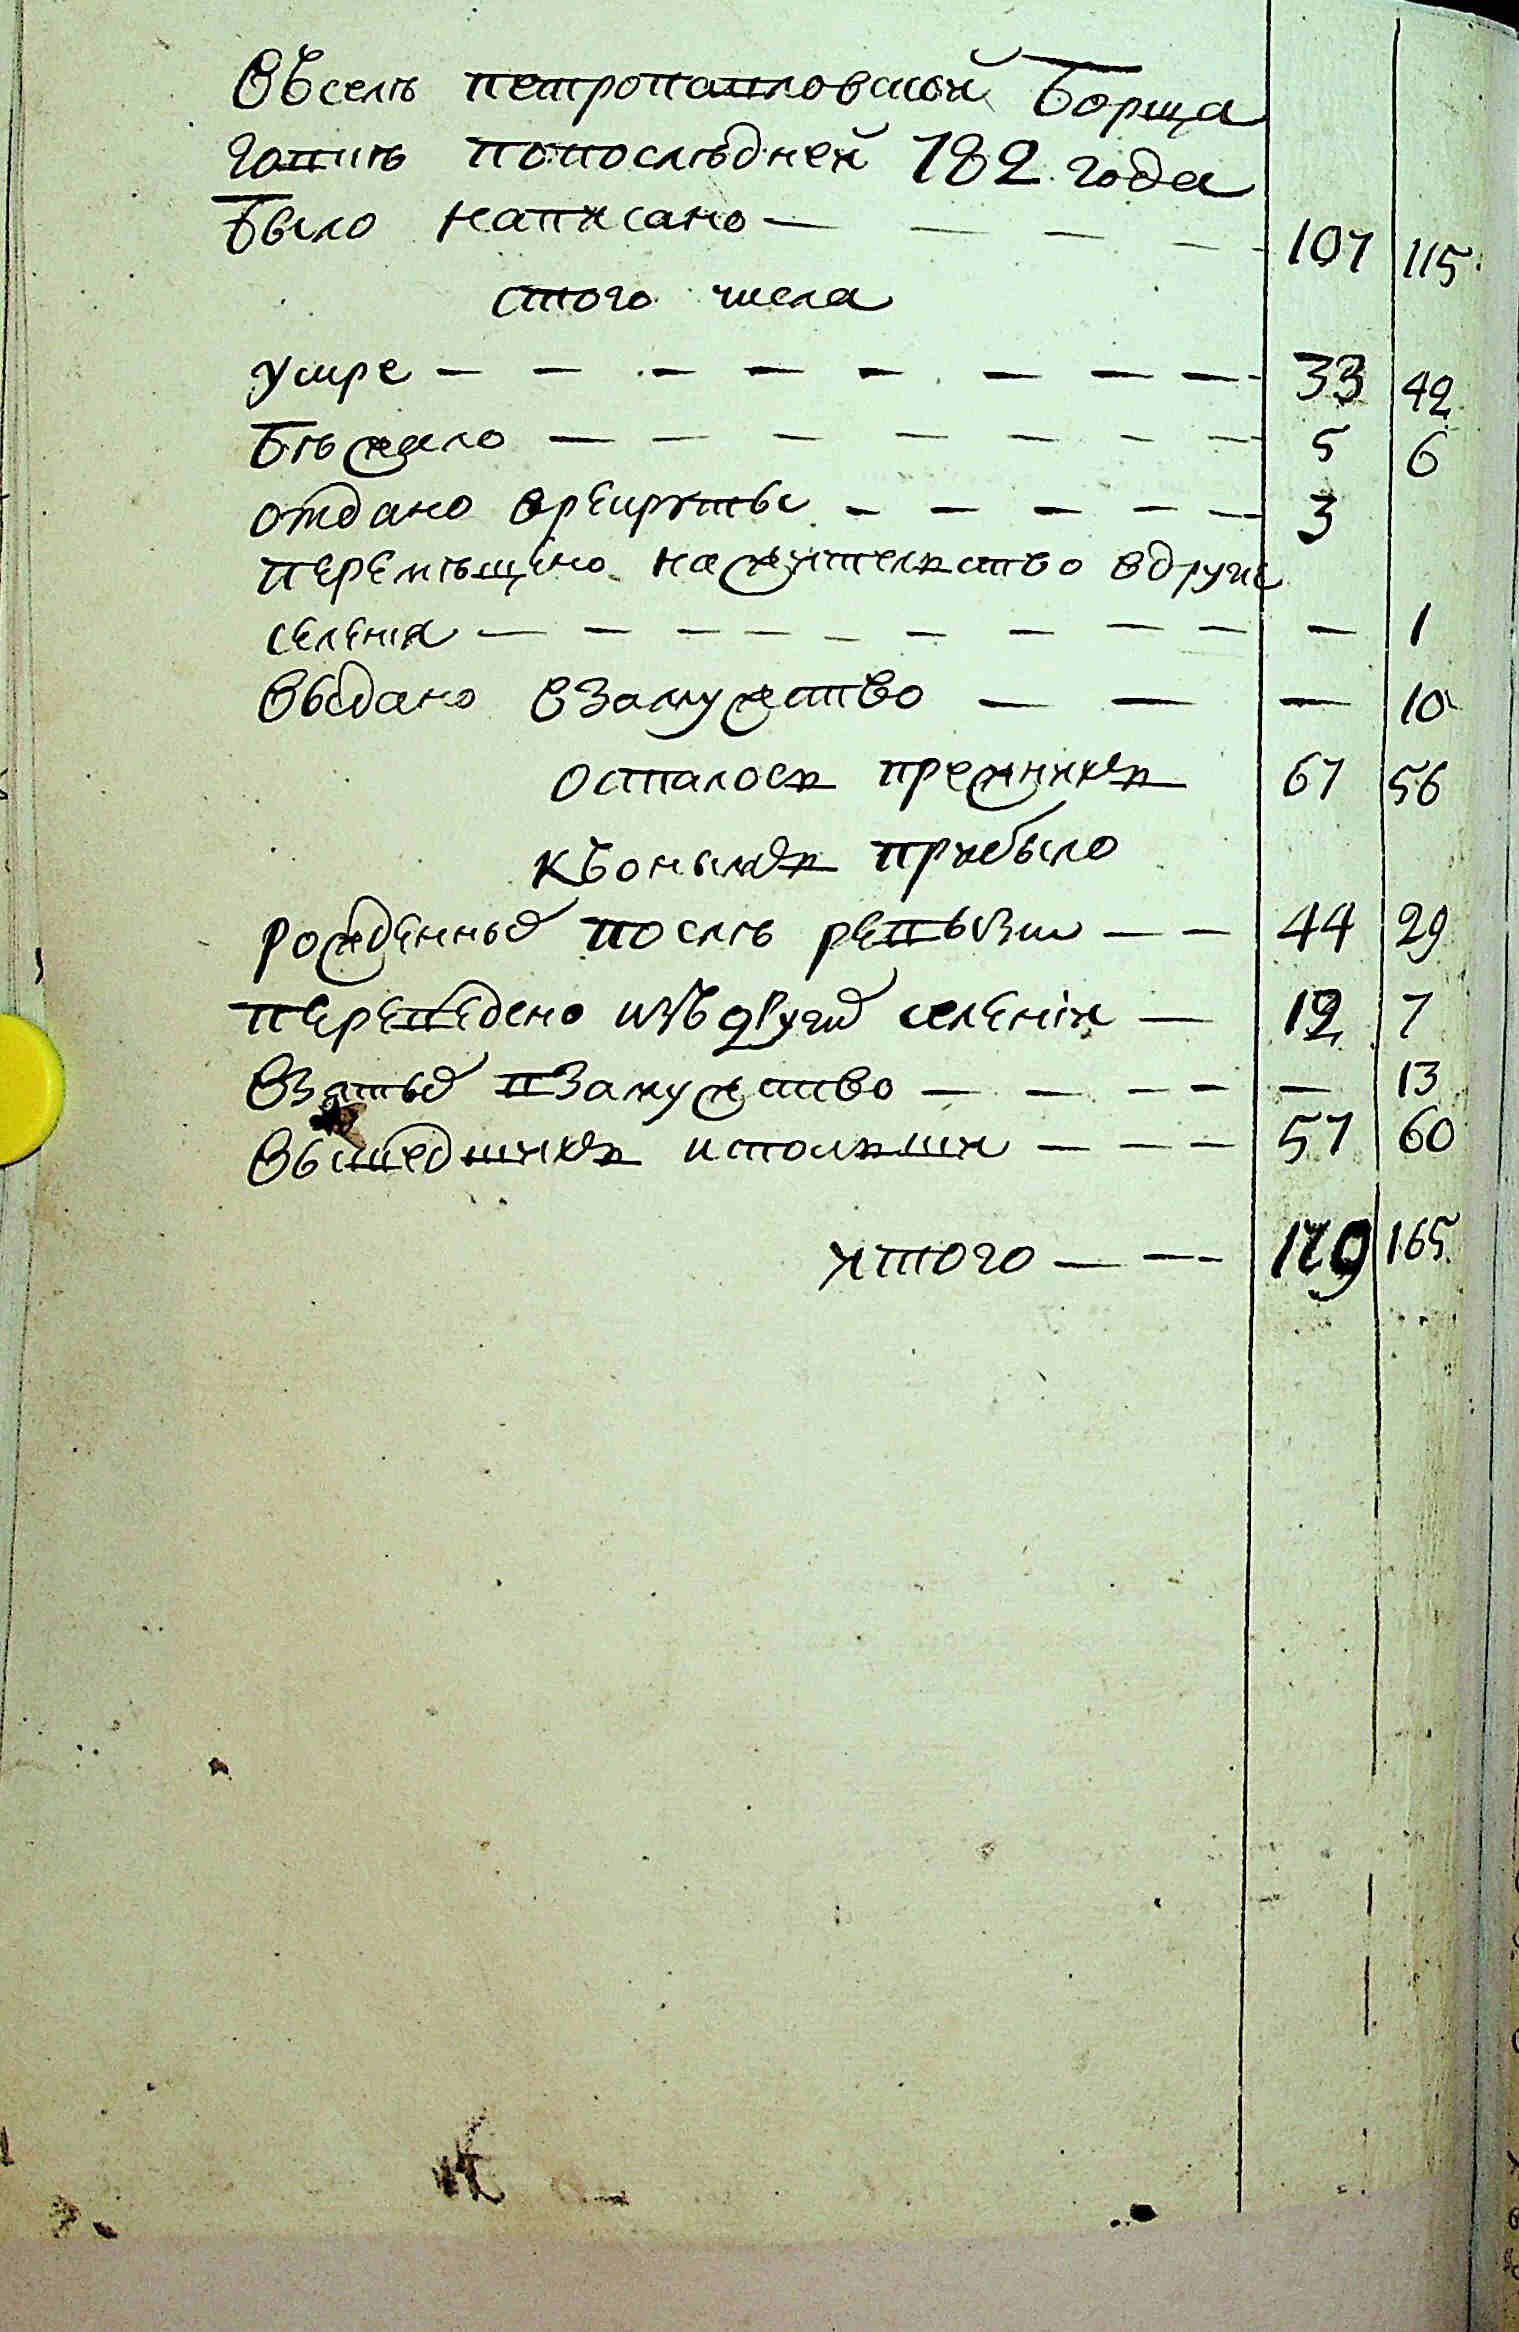 Въ селѣ петропавловской Борща
говкѣ попоследней 782 года
Было написано — — — — 107 115
стого числа
умре — — — — — — — — 33 42
Бѣжало — — — — — — — 5 6
отдано врекруты — — — — — 3
перемѣщено нажительство вдругие
селения — — — — — — — — — — 1
выдано взамужство — — — 10
осталось прежних 67 56
Къоным прибыло
рожденных послѣ ревызии — — 44 29
переведено изъ других селеній — 12 7
Взятых взамужство — — — — — 13
Вышедших исполши — — — 57 60
итого — — — 179 165